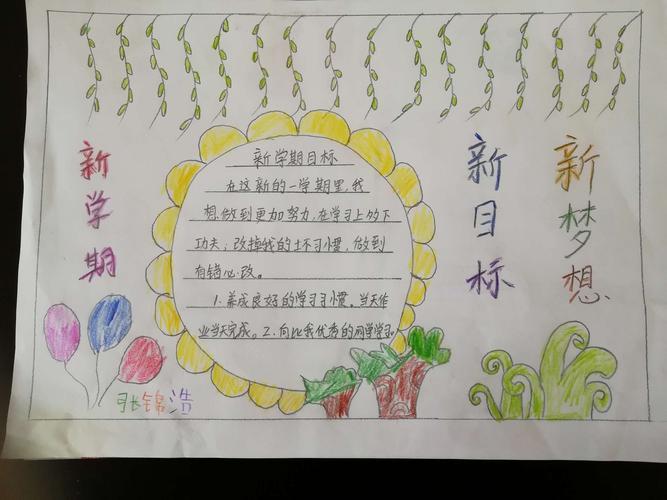 新学期
新学期目标
在这新的一学期里,我
想做到更加努力,在学习上多下
功夫;改掉我的坏习惯,做到
有错必改。
1.养成良好的学习习惯。当天作
业当天完成。2.向比我优秀的同学学习。
新目标
新梦想
张锦浩